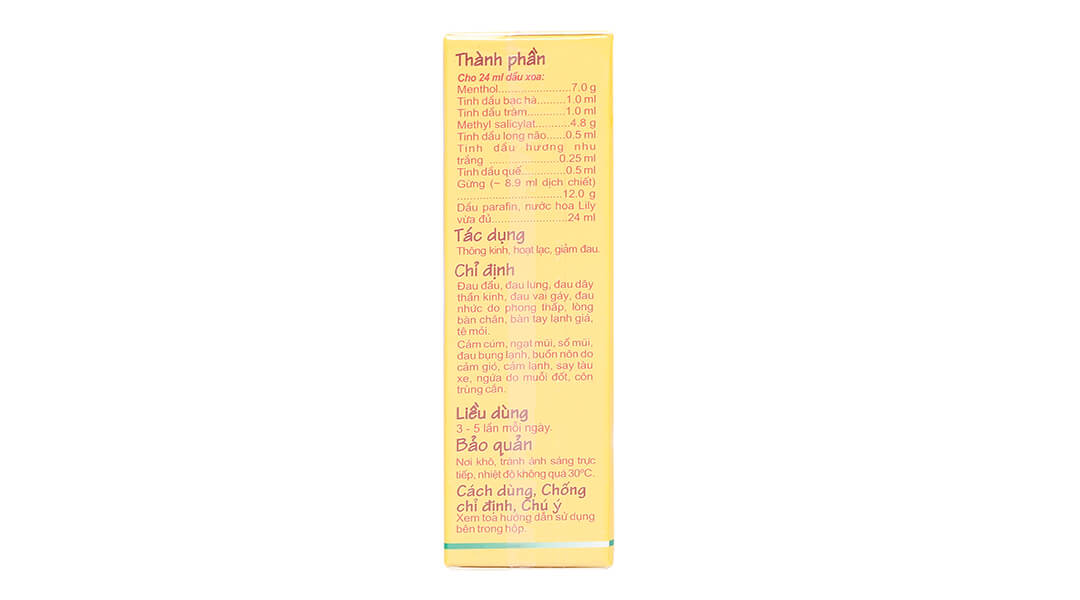 Thành phần
Cho 24 ml dầu xoa:
Menthol......................7.0 g
Tinh dầu bạc hà.........1.0 ml
Tinh dầu tràm............1.0 ml
Methyl salicylat...........4.8 g
Tinh dầu long não......0.5 ml
Tinh dầu hương nhu
trắng .....................0.25 ml
Tinh dầu quế.............0.5 ml
Gừng (~ 8.9 ml dịch chiết)
................................12.0 g
Dầu parafin, nước hoa Lily
vừa đủ.......................24 ml
Tác dụng
Thông kinh, hoạt lạc, giảm đau.
Chỉ định
Đau đầu, đau lưng, đau dây
thần kinh, đau vai gáy, đau
nhức do phong thấp, lòng
bàn chân, bàn tay lạnh giá,
tê mỏi.
Cảm cúm, ngạt mũi, sổ mũi,
đau bụng lạnh, buồn nôn do
cảm gió, cảm lạnh, say tàu
xe, ngứa do muỗi đốt, côn
trùng cắn.
Liều dùng
3 - 5 lần mỗi ngày.
Bảo quản
Nơi khô, tránh ánh sáng trực
tiếp, nhiệt độ không quá 30ºC.
Cách dùng, Chống
chỉ định, Chú ý
Xem toa hướng dẫn sử dụng
bên trong hộp.